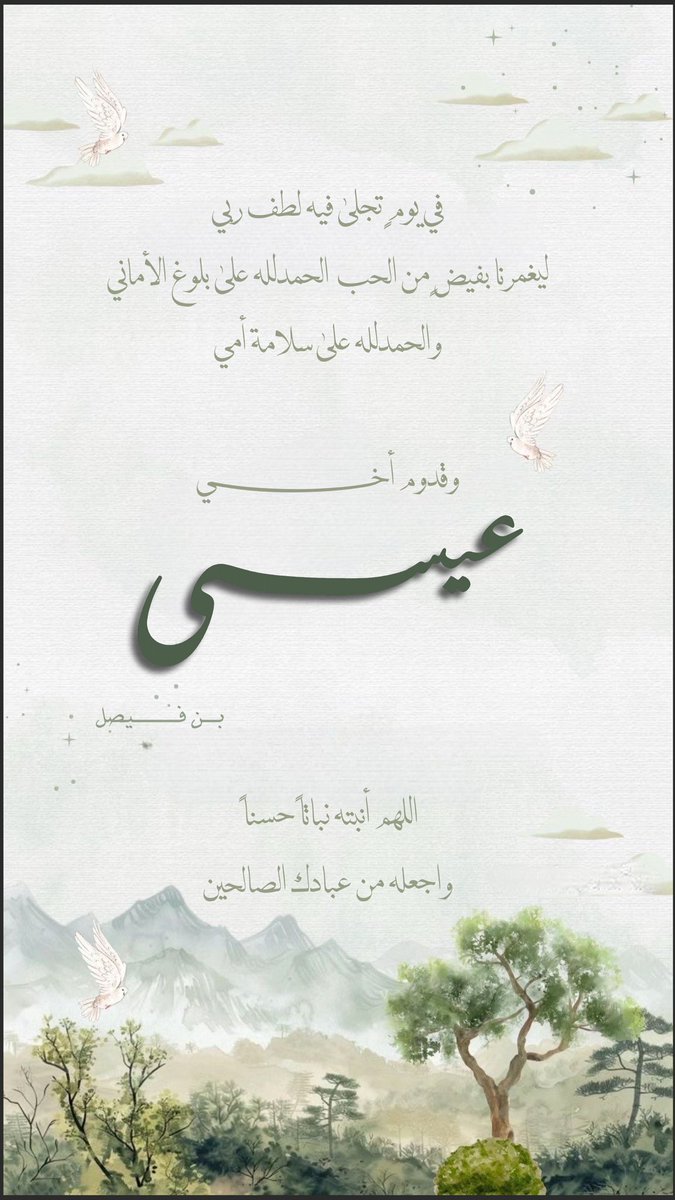 في يومٍ تجلىٰ فيه لطف ربي
ليغمرنا بفيضٍ من الحب الحمدلله علىٰ بلوغ الأماني
والحمدلله علىٰ سلامة أمي
وقدوم أخـــــــي
عيســـى
بـن فـــيصل
اللهم أنبته نباتاً حسناً
واجعله من عبادك الصالحين